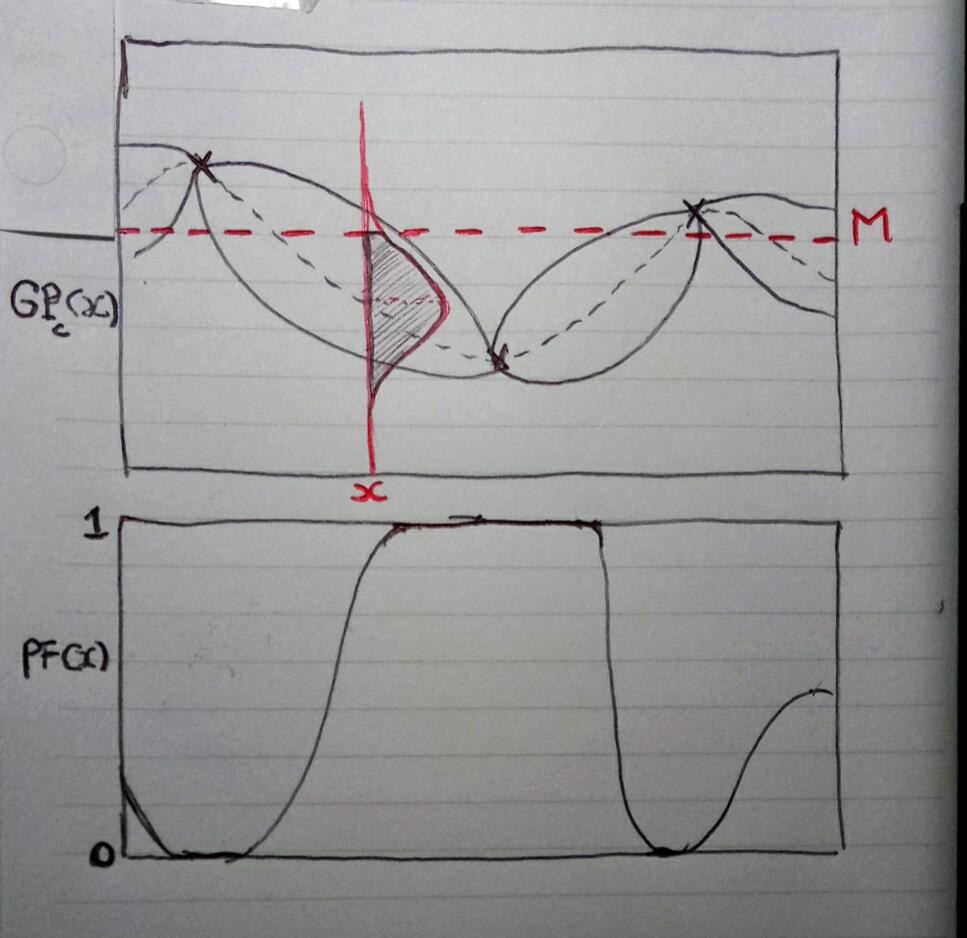 M
GP_c(x)
x
1
PF(x)
0